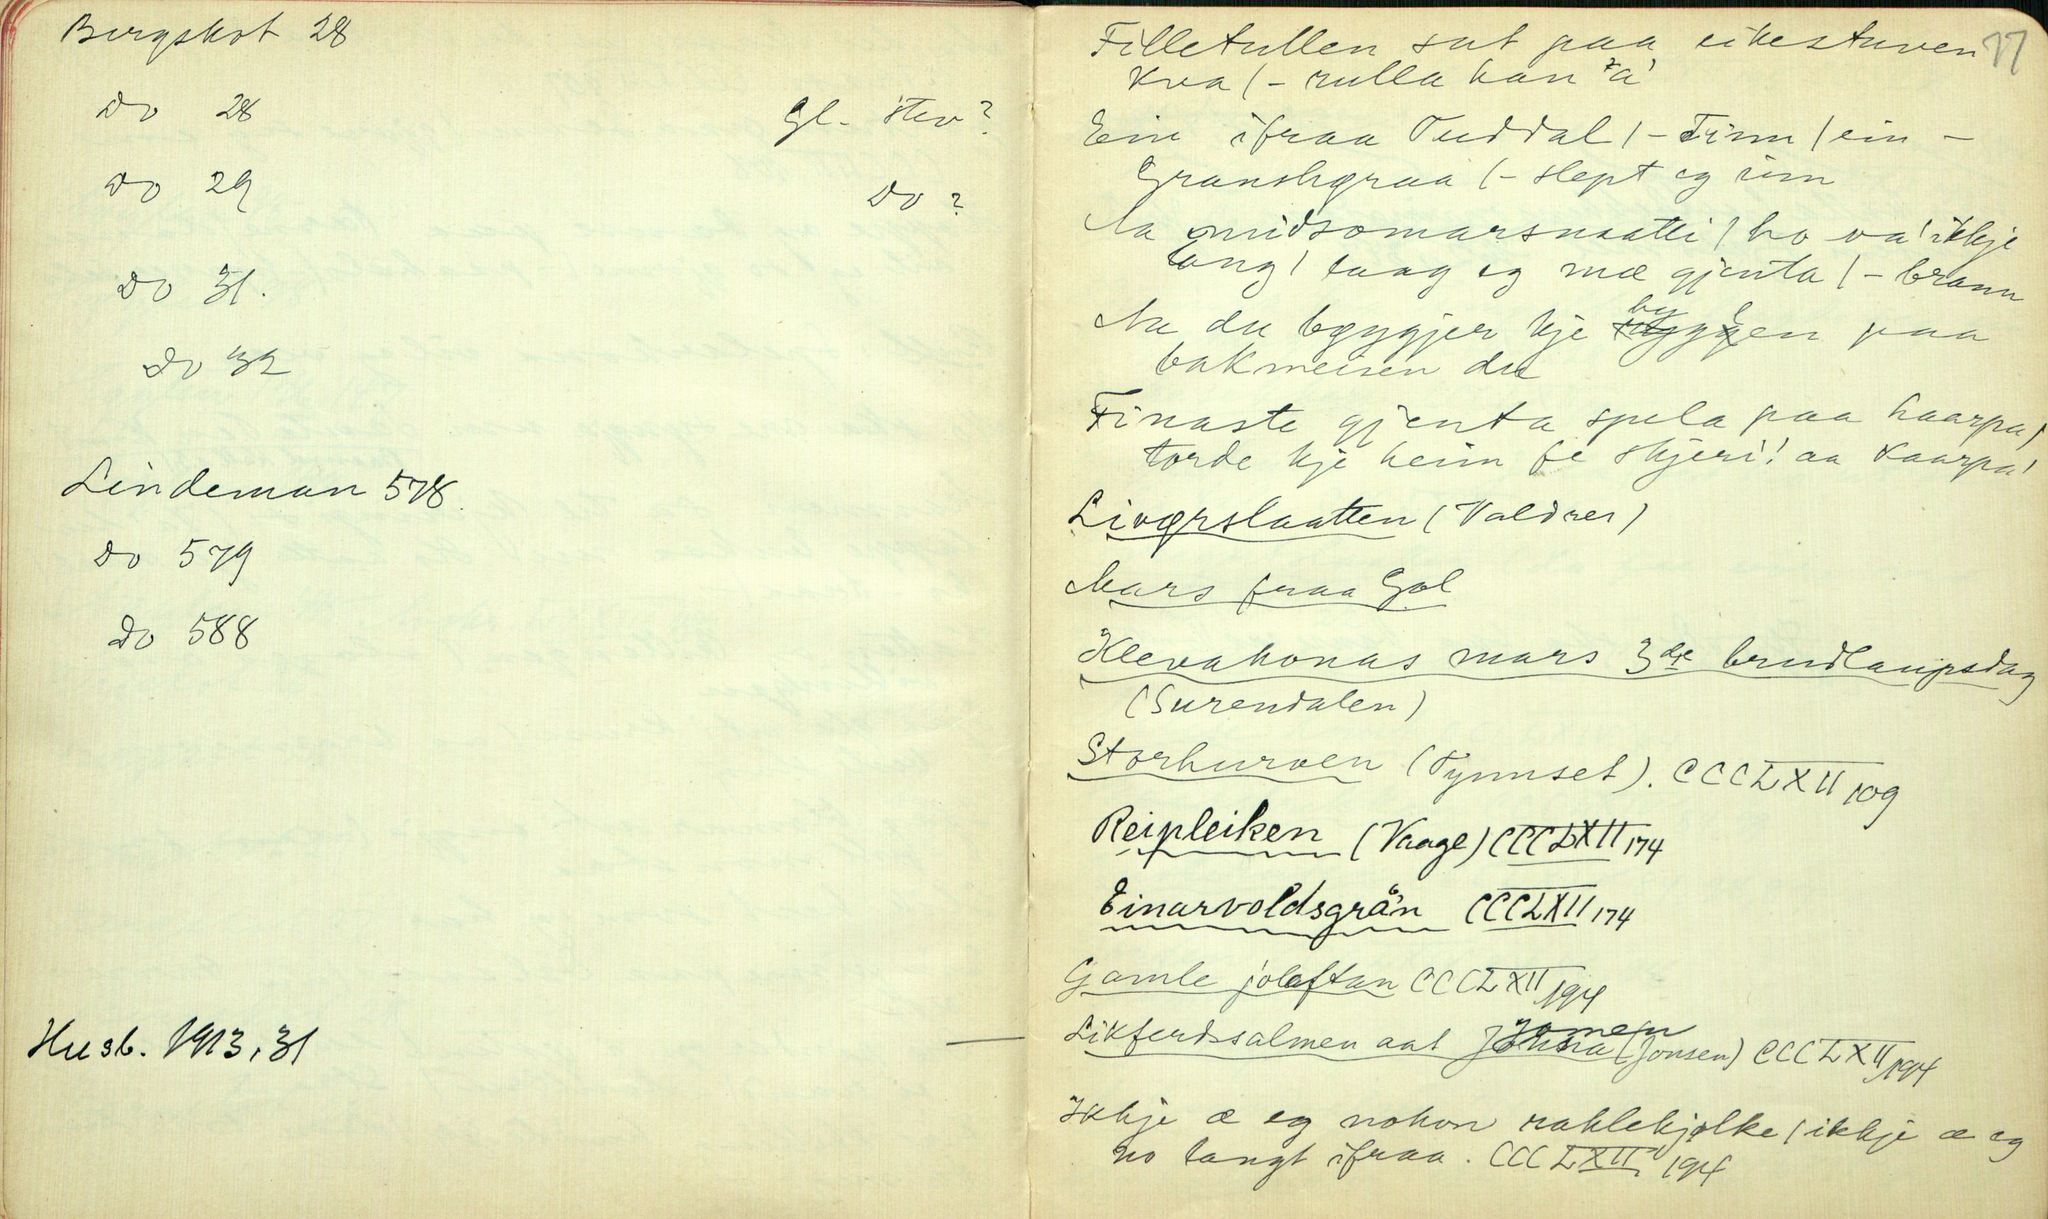 Bergskot 28
Do 28 Gl. stev?
Do 29 Do?
Do 31.
Do 32
Lindeman 578.
Do 579
Do 588
Husb. 1913, 31
77
Filletullen sat paa eikestuven
kva / - rulla han a'
Ein ifraa Tuddal / - Finn / ein -
Granshgraa / - slept eg inn
Aa midsomarsnaatti / ho va' ikkje
lang / taag eg mæ gjenta / - brann
Aa du byggjer kje byggjen paa
bakmeisen du
Finaste gjenta spela paa haarpa /
torde kje heim fe skjeri! aa kaarpa!
Livørslaatten (Valdres)
Mars fraa Gol
Klevakonas mars 3dje brudlaupsdag
(Surendalen)
Storhurven (Tynnset). CCCLXII 109
Reipleiken (Vaage) CCCLXII 174
Einarvoldsgrån CCCLXII 174
Gamle joleftan CCCLXII 194
Likferdssalmen aat (Jonsen) CCCLXII 194
Ikkje æ eg nokon raklekjølke / ikkje æ eg
no langt ifraa. CCCLXII 194